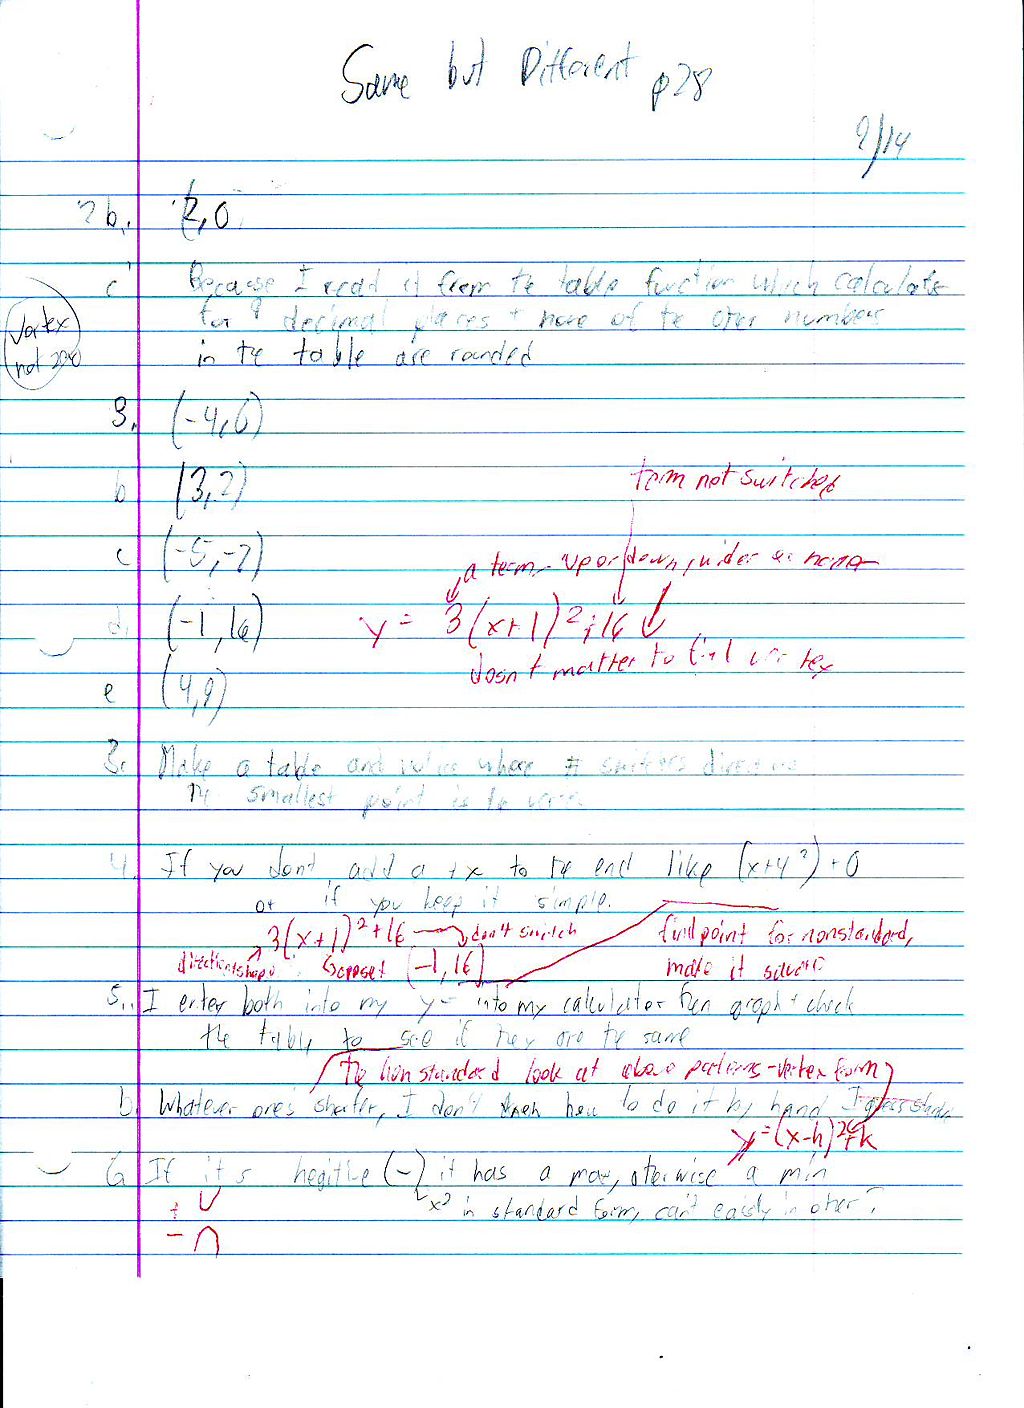 Same but Different p28
9/14
2b. (2,0
c Because I read it from the table function which calculates
for 9 decimal places + none of the other numbers
in the table are rounded
Vertex
not zero
3. (-4,0)
b (3,2)
term not switched
c (-5,-7)
a term- up or down, wider or
d. (-1,16) y = 3(x+1)²+16
dosnt matter to find vertex
e (4,9)
3. Make a table and where #
the smallest point is
4. If you dont add a +x to the end like (x+4²)+0
or if you keep it simple.
3(x+1)²+16 don't switch
find point for nonstandard,
direction+shape oposet (-1,16)
make it
5. I enter both into my y= into my calculator then graph + check
the table to see if they are the same
the nonstandard look at above patterns-vertex form
b. Whatever one's shorter, I don't know how to do it by hand I
y=(x-h)²+k
6 If it's negitive (-) it has a max, otherwise a min
+ ∪ x² in standard form, can't easily in other?
- ∩